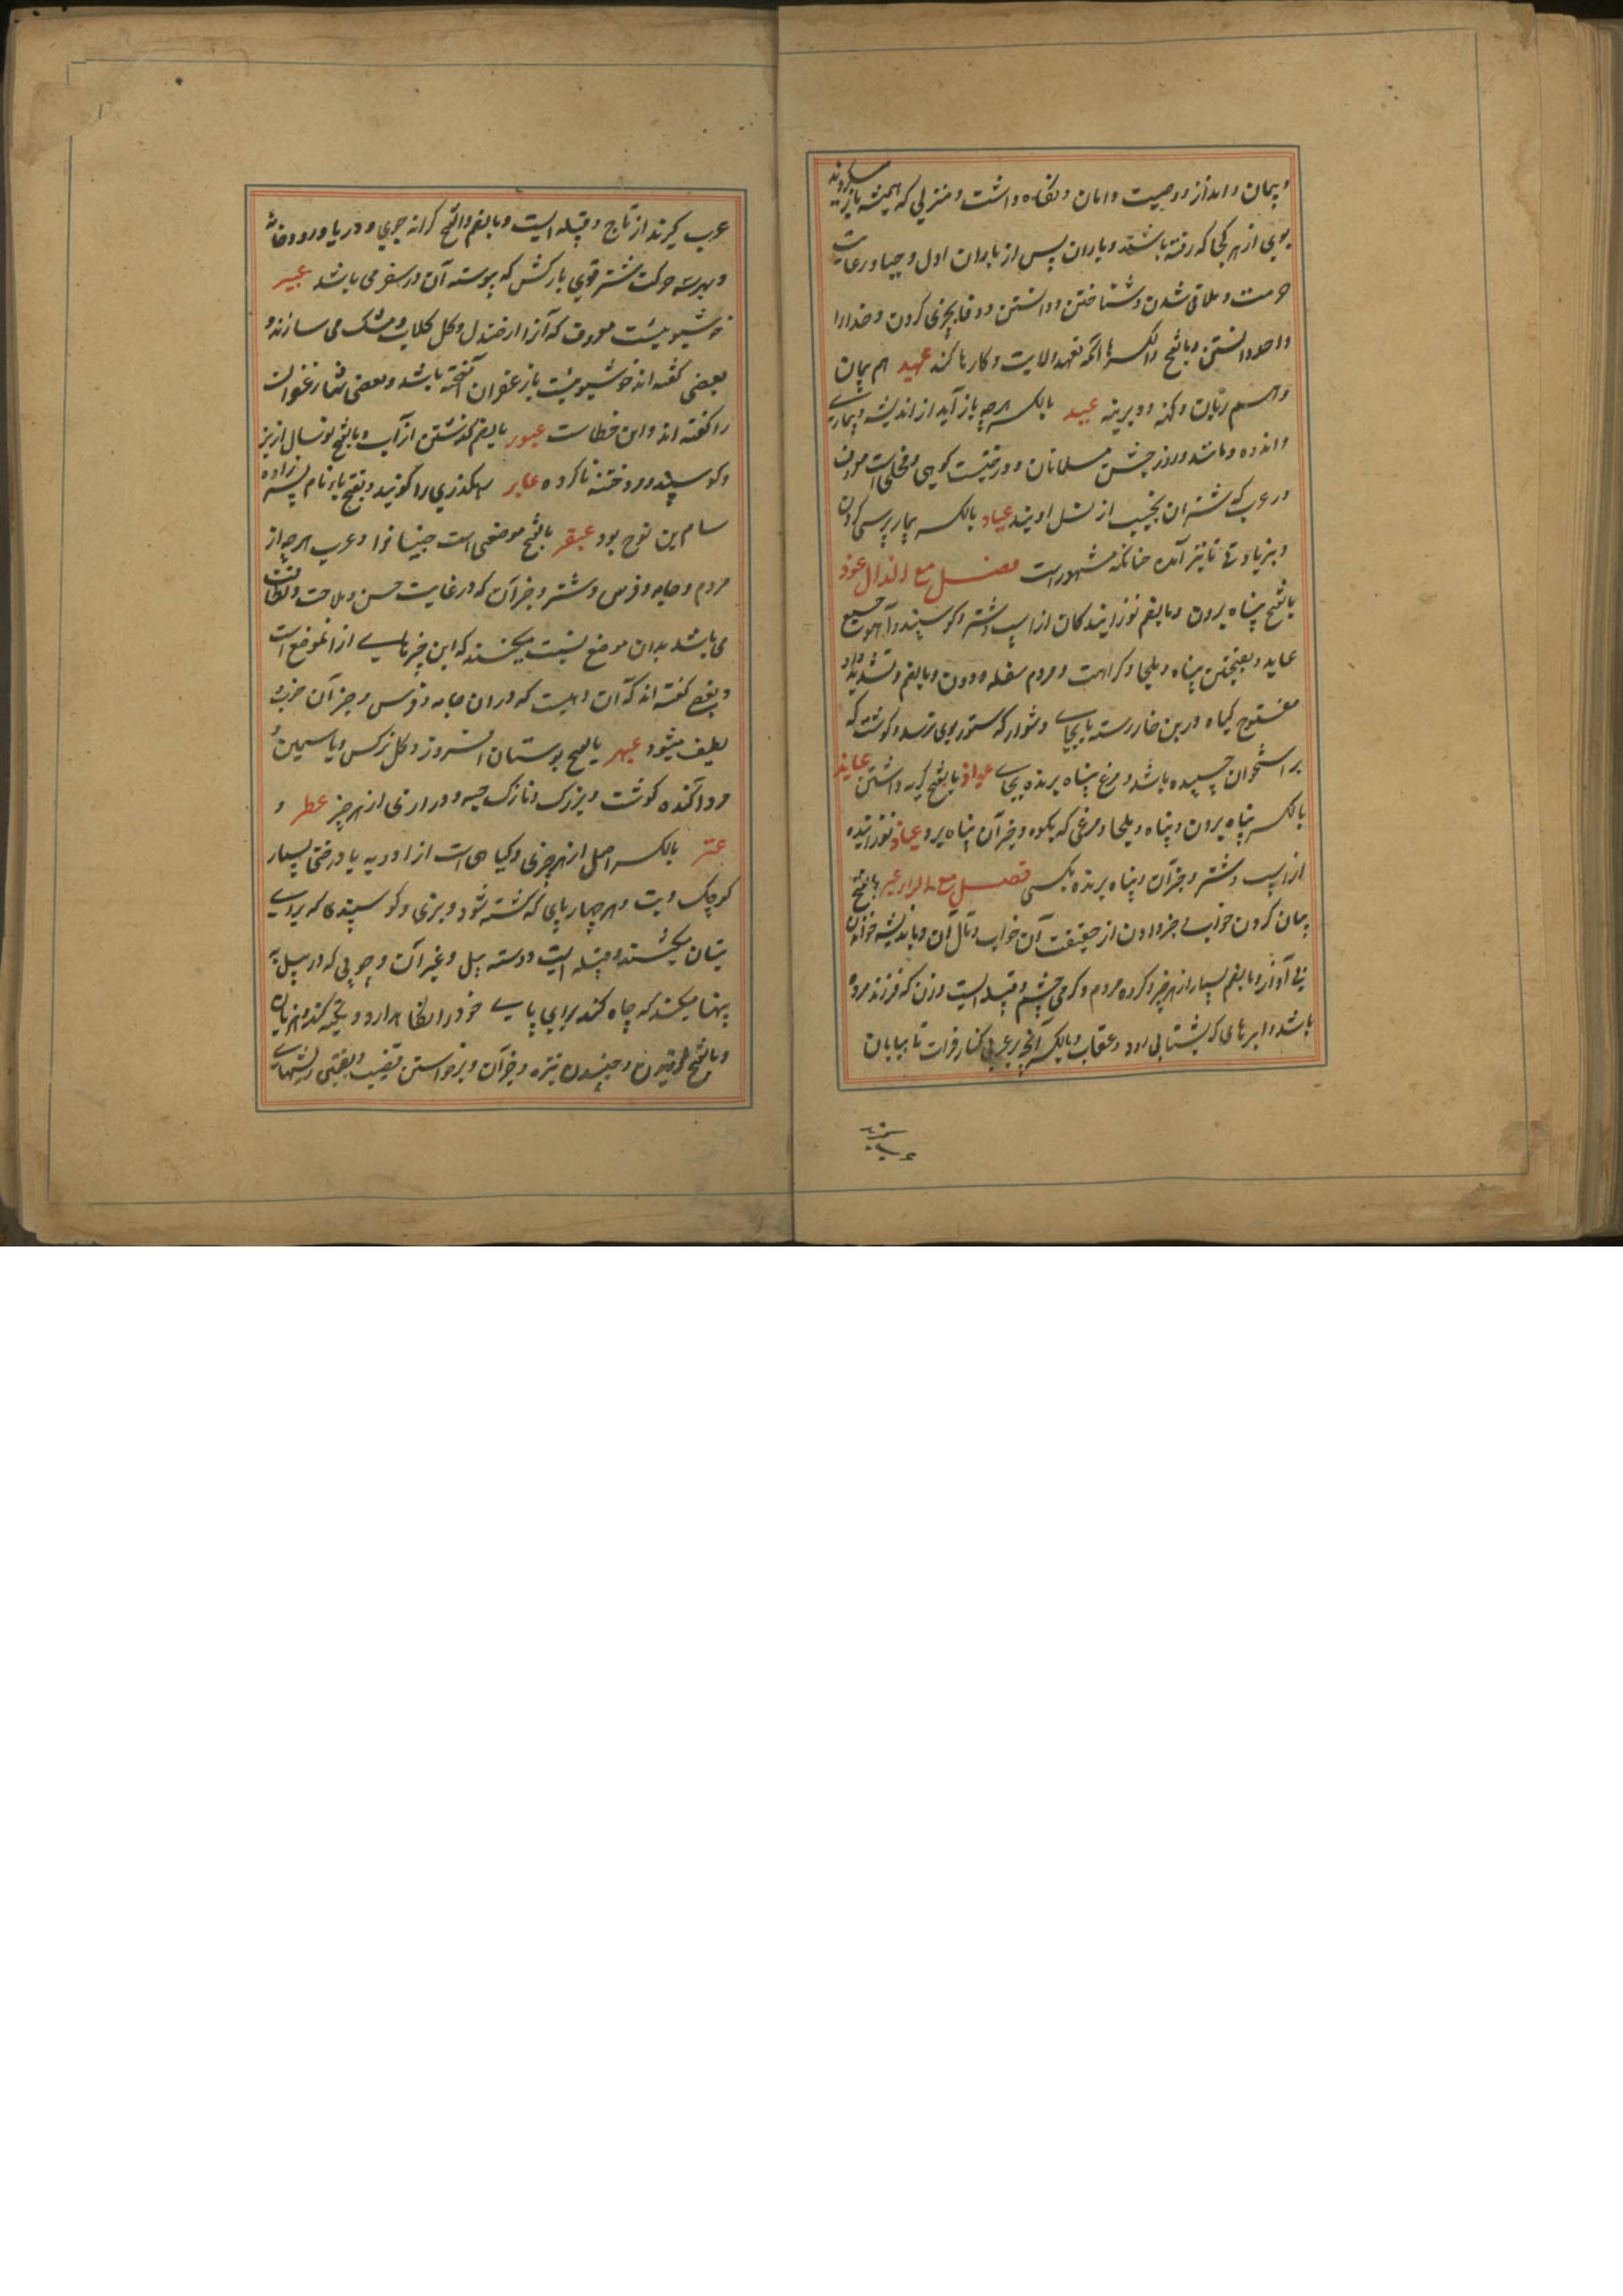 و پیمان و اندازز و وصیت و امان و نکاه داشت و منزلی که همیشه باز میکردند
بوی از هر کجا که رفته باشند و باران پس از باران اول و حیا و رعایت
حرمت و ملاقی شدن و شناختن و دانستن و وفا بچیزی کردن و خدا را
واحد دانستن و بالفتح والکسر انکه تعهد ولایت و کارها کند عهید هم پیمان
واسم ربان و کهنه و دیرینه عید بالکسر هرچه باز آید از اندیشه و بیماری
و اندوه و مانند و روز جشن مسلمانان و درختیست کوهی و فحلی است معروف
در عرب که شتران نجیب از نسل اویند عیاد بالکسر بیمار پرسی کردن
و بزیادتی تا نیز آمده جنانکه مشهور است فصل مع الذال عوذ
بالفتح پناه بردن و بالضم نوزایندکان از اسپ و شتر و کوسپند و آهو جمع
عاید و بفتحتین پناه و ملجا و کراهت و مردم سفله و دون و بالضم و تشدید واو
مفتوح کیاه در بن خار رسته یا بجای دشوار که ستور بوی نرسد و کوشت که
بر استخوان چسپیده باشد و مرغ پناه برنده بجای عواذ بالفتح کریه داشتن عایذ
بالکسر پناه بردن و پناه و ملجا و مرغی که بکوه و جز آن پناه برد عیاذ نوزاینده
از اسپ و شتر و جز آن و پناه برنده بکسی فصل مع الراء عبر بالفتح
بیان کردن خواب و خبر دادن از حقیقت آن خواب و مآل آن و باندیشه خواندن
بی آواز و بالضم بسیار از هر چیز و کروه مردم و کرمی چشم و قبیله ایست و زن که فرزند مرده
باشد و ابرهای که بشتابی رود و عقاب و بالکسر آنچه بر عربی کنار فرات تا بیابان
عرب کیرند از تاج و قبیله ایست و بالضم والفتح کرانه جوی و دریا و رودخانه
و بهر سه حرکت شتر قوی بارکش که پیوسته آن در سفر می باشد عبیر
خوشبوییست معروف که آنرا از صندل و کل کلاب و مشک می سازند و
بعضی کفته اند خوشبوییست باز عفران آمیخته باشد و بعضی زعفران
را کفته اند و این خطاست عبور بالضم کذشتن از آب و بالفتح یوسال از بز
و کوسپند و ختنه ناکرده عابر رهکذری را کویند و بفتح با نام پسر زاده
سام بن نوح بود عبقر بالفتح موضعی است و عرب هر چه از
مردم و جامه و فرس و شتر و جز آن که در غایت حسن و ملاحت و لطافت
می باشد بدان موضع نسبت میکنند که این چیز از آنموضع است
و بعضی کفته اند که آن دهیست که در آن جامه و فرس و جز آن خوب
لطیف میشود عبهر بالفتح بوستان افروز و کل نرکس و یاسمین و
مرد آکنده کوشت و بزرک و نازک جثه و درازی از هر چیز عطر و
عتر بالکسر اصل از هر چیزی و کیاهی است از ادویه یا درختی بسیار
کوچک و بت و هر چهار پای که کشته شود و بزی و کوسپندی که برای
بتان میکشند و قبیله ایست و دسته بیل و غیر آن و چوبی که در بیل به
پهنا میکنند که چاه کند برای پای خود را نکاه دارد و تکیه کند
و بالفتح لرزیدن و جنبیدن نیزه و جز آن و برخواستن قضیب